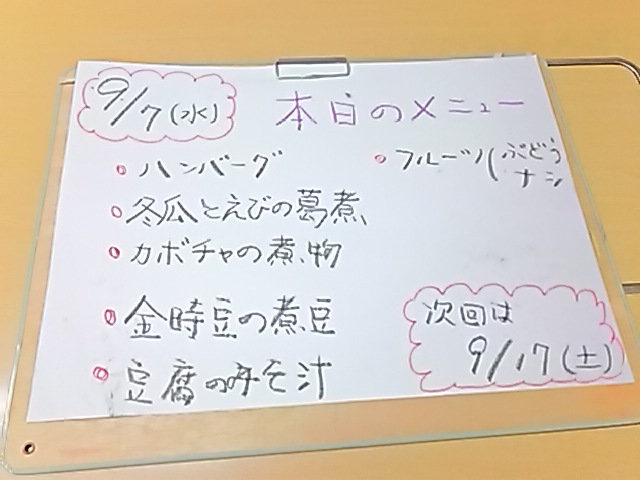 9/7(水)
本日のメニュー
ハンバーグ
冬瓜とえびの葛煮
カボチャの煮物
金時豆の煮豆
豆腐のみそ汁
フルーツ(ぶどう
ナシ
次回は
9/17(土)